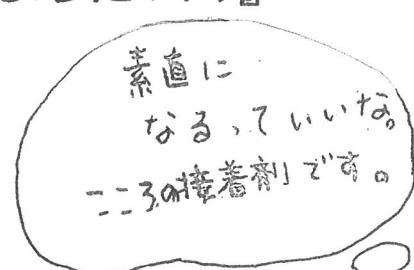 素直に
なるっていいな。
こころの接着剤です。